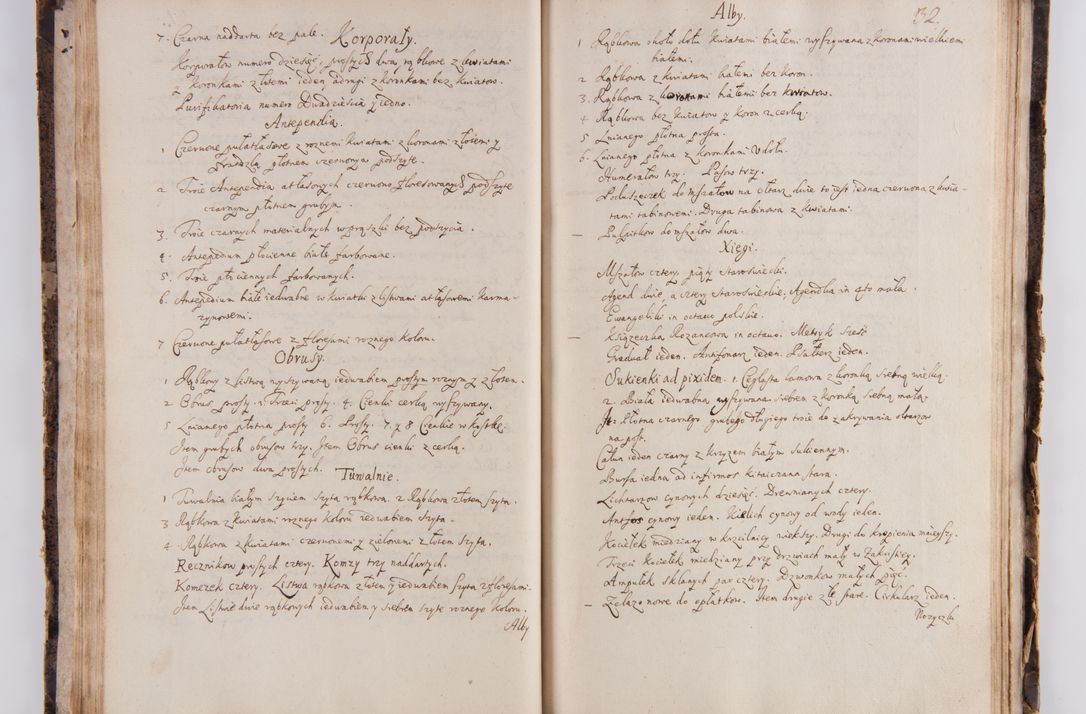 7. Czarna naddarta bez pale.
Korporały.
Korporałow numero dziesięć, prostych dwa rąbkowe z kwiatami
z koronkami z złotem ieden, a drugi z koronkami bez kwiatow.
Purifikatoria numero Dwadzieścia y iedno.
Antependia.
1 Czerwone pułatłasowe z roznemi kwiatami z koronami złotemi y
płotnem czerwonym podszyte.
2 Troie Antependia atłasowych czerwono floresowanych podszyte
czarnym płotnem grubym.
3. Troie czarnych materialnych w prążki bez podszycia.
4. Antepedium płocienne białe farbowane.
5. Troie płóciennych farbowanych.
6. Antepedium białe iedwabne w kwiatki z listwami atłasowemi karma-
zynowemi.
7 Czerwone pułatłasowe z floresami roznego koloru.
Obrusy.
1 Rąbkowy z listwą wyszywaną iedwabiem prostym roznym y złotem.
2 Obrus prosty. 3. Trzeci prosty. 4. Cienki cerką wyszywany.
5 Lnianego płotna prosty 6. Prosty. 7. y 8 Cienkie w kostkę.
Item grubych obrusow trzy. Item Obrus cienki z cerką.
Item obrusow dwa prostych.
Tuwalnie.
1 Tuwalnia białym szyciem szyta rąbkowa. 2 Rąbkowa złotem szyta.
3 Rąbkowa z kwiatami roznego koloru iedwabiem szyta.
4. Rąbkowa z kwiatami czerwonemi y zielonemi z złotem szyta.
Recznikow prostych cztery. Komzy trzy naddartych.
Komezek cztery. Listwa rąbkowa z złotem y iedwabiem szyta z floresami.
Item Listwie dwie rąbkowych iedwabiem y srebrem szyte roznego koloru.
Alby
Alby.
32.
1 Rąbkowa około dołu kwiatami białemi wyszywana z koronami wielkiemi
białemi.
2 Rąbkowa z kwiatami białemi bez koron.
3. Rąbkowa z koronami białemi bez kwiatow.
4 Rąbkowa bez kwiatow y koron z cerką.
5 Lnianego płotna prosta.
6. Lnianego płotna z koronkami u dołu.
Humerałow trzy. Pasow trzy.
Poduszeczek do mszałow na ołtarz dwie to iest iedna czerwona z kwia-
tami tabinowemi. Druga tabinowa z kwiatami.
— Pulpitkow do mszałow dwa.
Xięgi.
Mszałow cztery, piąty staroświecki.
Agend dwie, a cztery staroświeckie. Agendka in 4to mała.
Ewangeliki in octavo polskie.
— Książeczka Rozancowa in octavo. Metryk sześć
Graduał ieden. Antyfonarz ieden. Psałterz ieden.
Sukienki ad pixidem. 1. Ceglasta lamowa z koronką srebną wielką.
2. Biała iedwabna wyszywana srebrem z koronką srebną małą.
Płotna czarnego grubego długiego troie do zakrywania ołtarzow
na post.
Całun ieden czarny z krzyzem białym sukiennym.
Bursa iedna ad infirmos kitaiczana stara.
Lichtarzow cynowych dziesięć. Drewnianych cztery.
cynowy ieden. Kielich cynowy od wody ieden.
Kociełek miedziany w krzcilnicy wiekszy. Drugi do kropienia mnieyszy.
Trzeci kociełek miedziany przy drzwiach mały w Zakristiey.
Ampułek sklanych par cztery. Dzwonkow małych pięć.
— Zelazo nowe do opłatkow. Item drugie złe stare. Cirkularz ieden.
Nozyczki